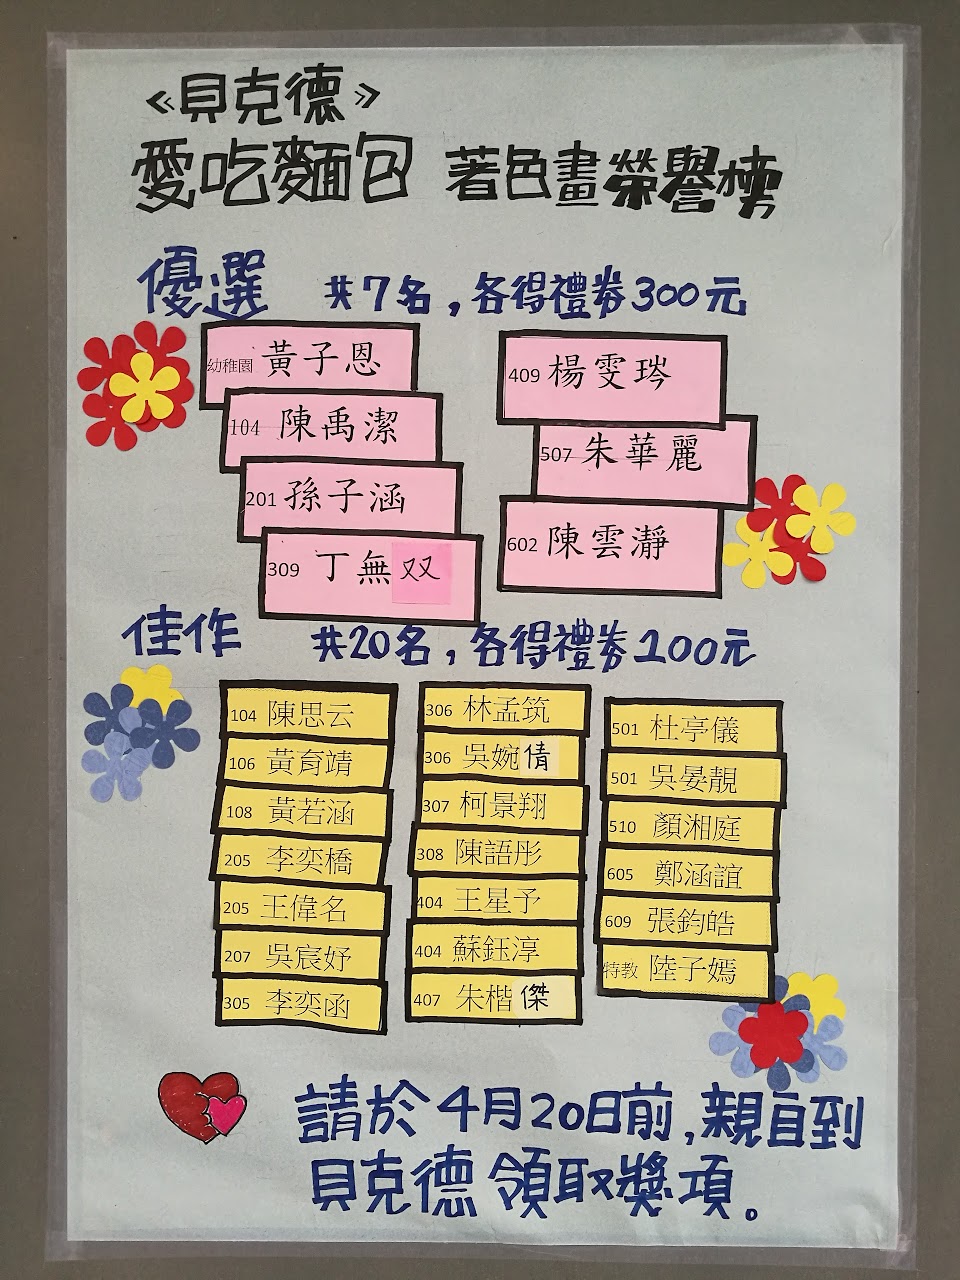 《貝克德》
愛吃麵包 著色畫榮譽榜
優選 共7名,各得禮券300元
幼稚園 黃子恩
104 陳禹潔
201 孫子涵
309 丁無双
409 楊雯琌
507 朱華麗
602 陳雲瀞
佳作 共20名,各得禮券100元
104 陳思云
106 黃育靖
108 黃若涵
205 李奕橋
205 王偉名
207 吳宸妤
305 李奕函
306 林孟筑
306 吳婉倩
307 柯景翔
308 陳語彤
404 王星予
404 蘇鈺淳
407 朱楷傑
501 杜亭儀
501 吳晏靚
510 顏湘庭
605 鄭涵誼
609 張鈞皓
特教 陸子嫣
請於4月20日前,親自到
貝克德 領取獎項。